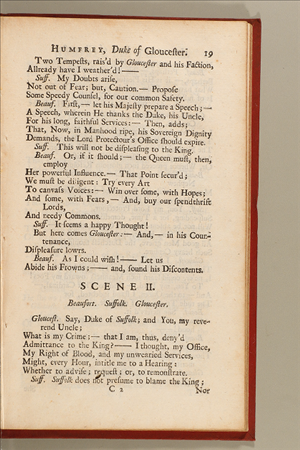 HUMFREY, Duke of Gloucester. 19
Two Tempests, rais'd by Gloucester and his Faction,
Allready have I weather'd!——
Suff. My Doubts arise,
Not out of Fear; but, Caution.— Propose
Some Speedy Counsel, for our common Safety.
Beauf. First,— let his Majesty prepare a Speech;—
A Speech, wherein He thanks the Duke, his Uncle,
For his long, faithful Services:— Then, adds;
That, Now, in Manhood ripe, his Sovereign Dignity
Demands, the Lord Protectour's Office should expire.
Suff. This will not be displeasing to the King.
Beauf. Or, if it should;— the Queen must, then,
employ
Her powerful Influence.— That Point secur'd;
We must be diligent: Try every Art
To canvass Voices:— Win over some, with Hopes;
And some, with Fears,— And, buy our spendthrift
Lords,
And needy Commons.
Suff. It seems a happy Thought!
But here comes Gloucester:— And,— in his Coun-
tenance,
Displeasure lowrs.
Beauf. As I could wish!—— Let us
Abide his Frowns;—— and, sound his Discontents.
SCENE II.
Beaufort. Suffolk. Gloucester.
Gloucest. Say, Duke of Suffolk; and You, my reve-
rend Uncle;
What is my Crime;— that I am, thus, deny'd
Admittance to the King?—— I thought, my Office,
My Right of Blood, and my unwearied Services,
Might, every Hour, intitle me to a Hearing:
Whether to advise; request; or, to remonstrate.
Suff. Suffolk does not presume to blame the King;
C 2 Nor